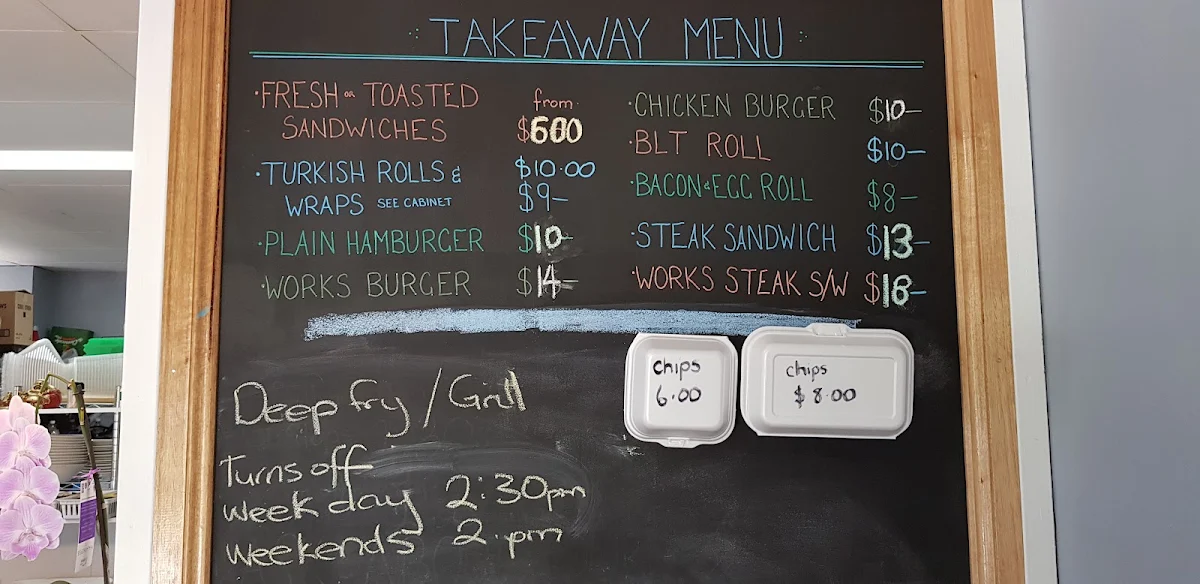 TAKEAWAY MENU
·FRESH OR TOASTED
SANDWICHES
from
$600
·TURKISH ROLLS &
WRAPS SEE CABINET
$10.00
$9-
·PLAIN HAMBURGER $10-
·WORKS BURGER $14-
·CHICKEN BURGER $10-
·BLT ROLL $10-
·BACON & EGG ROLL $8-
·STEAK SANDWICH $13-
·WORKS STEAK S/W $16-
chips
6.00
chips
$8.00
Deep fry / Grill
Turns off
week day 2:30pm
weekends 2.pm